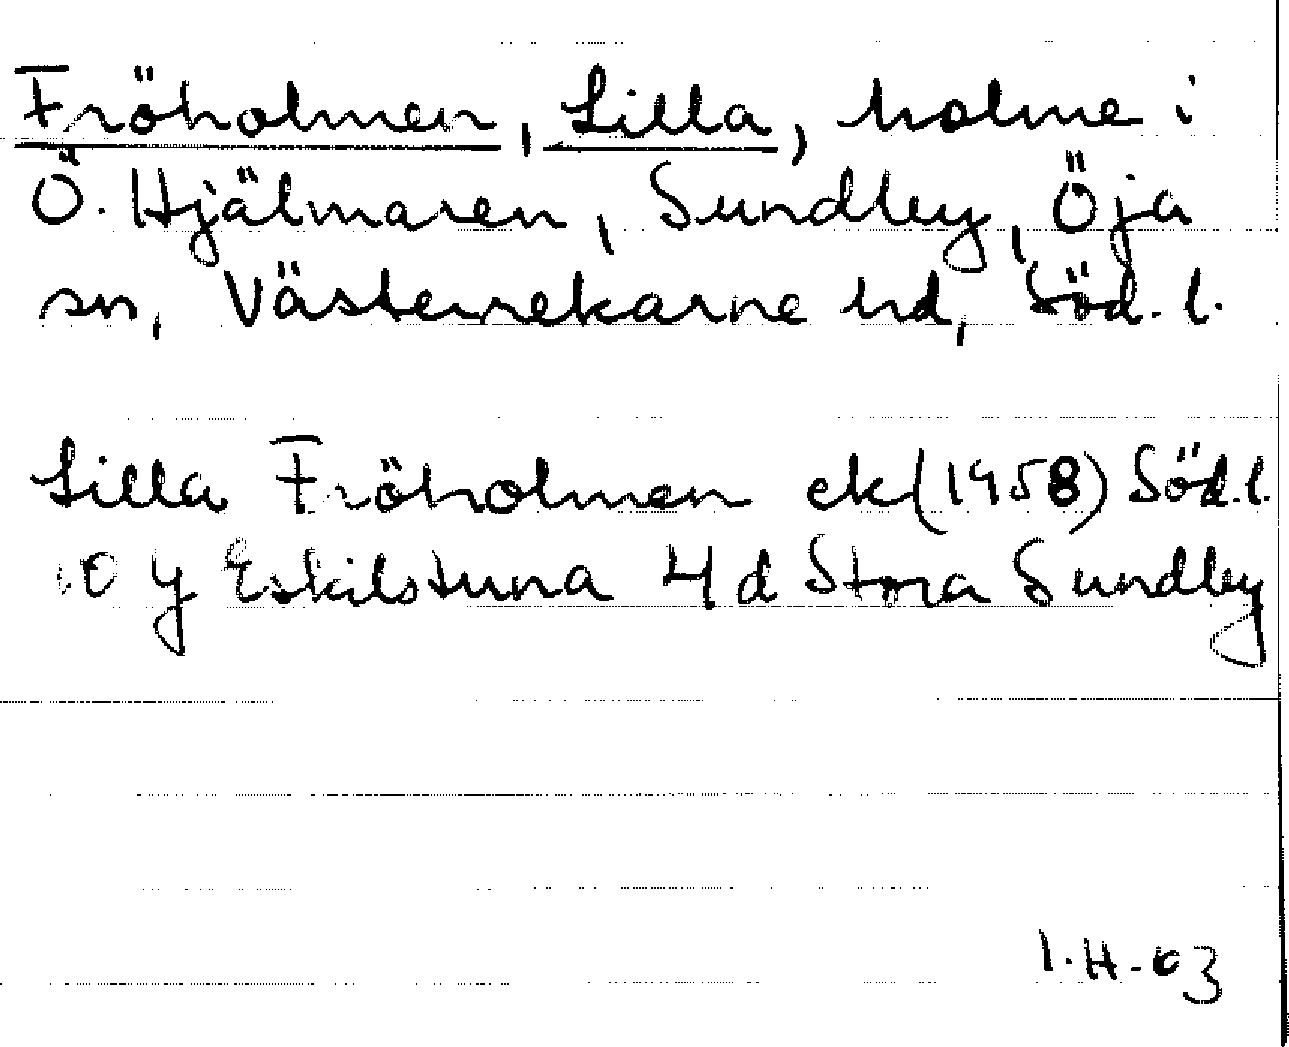 Fröholmen, Lilla, holme i
Ö. Hjälmaren, Sundby, Öja
sn, Västerrekarne hd, Söd. l.
Lilla Fröholmen ek (1958) Söd. l.
10 y Eskilstuna 4 d Stora Sundby
I.H-63